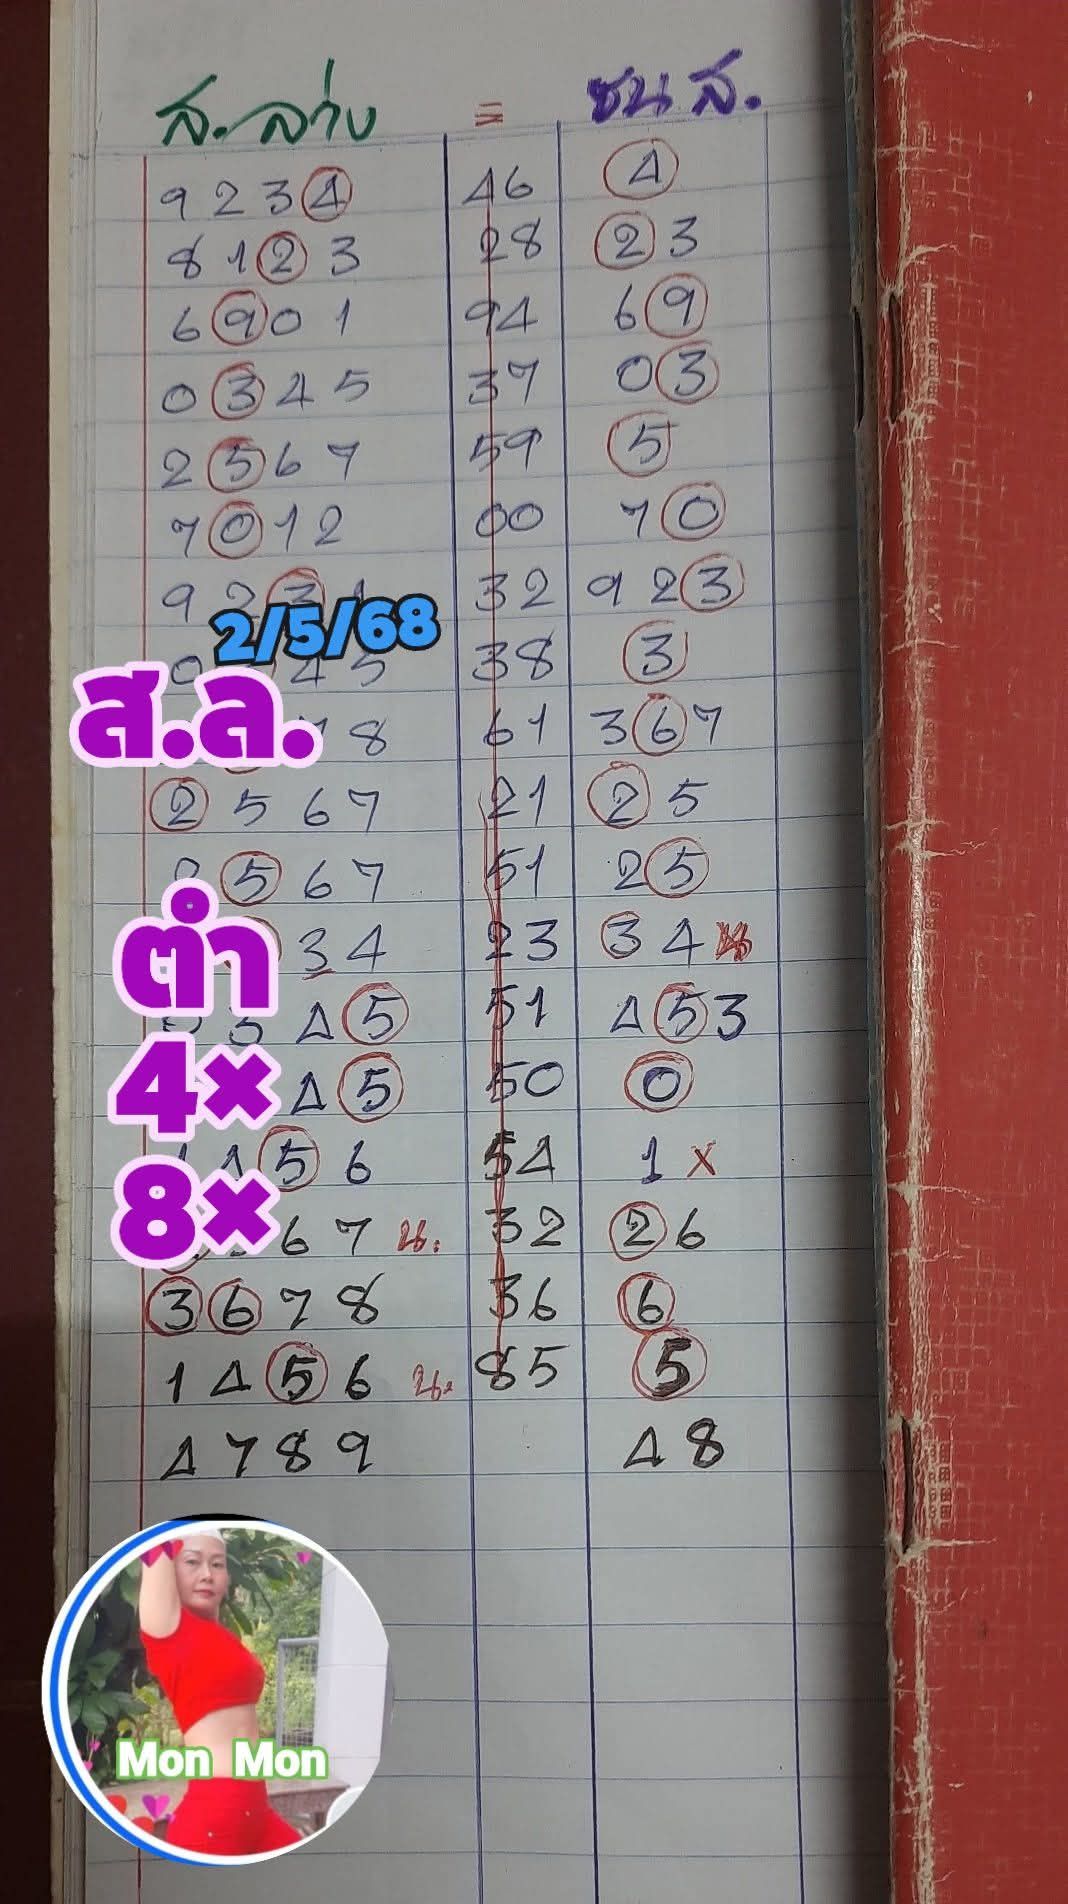 ส.ล่าง = ชน ส.
9 2 3 4 46 4
8 1 2 3 28 2 3
6 9 0 1 94 6 9
0 3 4 5 37 0 3
2 5 6 7 59 5
7 0 1 2 00 7 0
9 2 3 32 9 2 3
2/5/68
0 4 5 38 3
ส.ล.
7 8 61 3 6 7
2 5 6 7 21 2 5
5 6 7 51 2 5
ตำ
3 4 23 3 4
3 4 5 51 4 5 3
4×
4 5 50 0
4 5 6 54 1 x
8×
6 7 น. 32 2 6
3 6 7 8 36 6
1 4 5 6 น. 85 5
4 7 8 9 4 8
Mon Mon